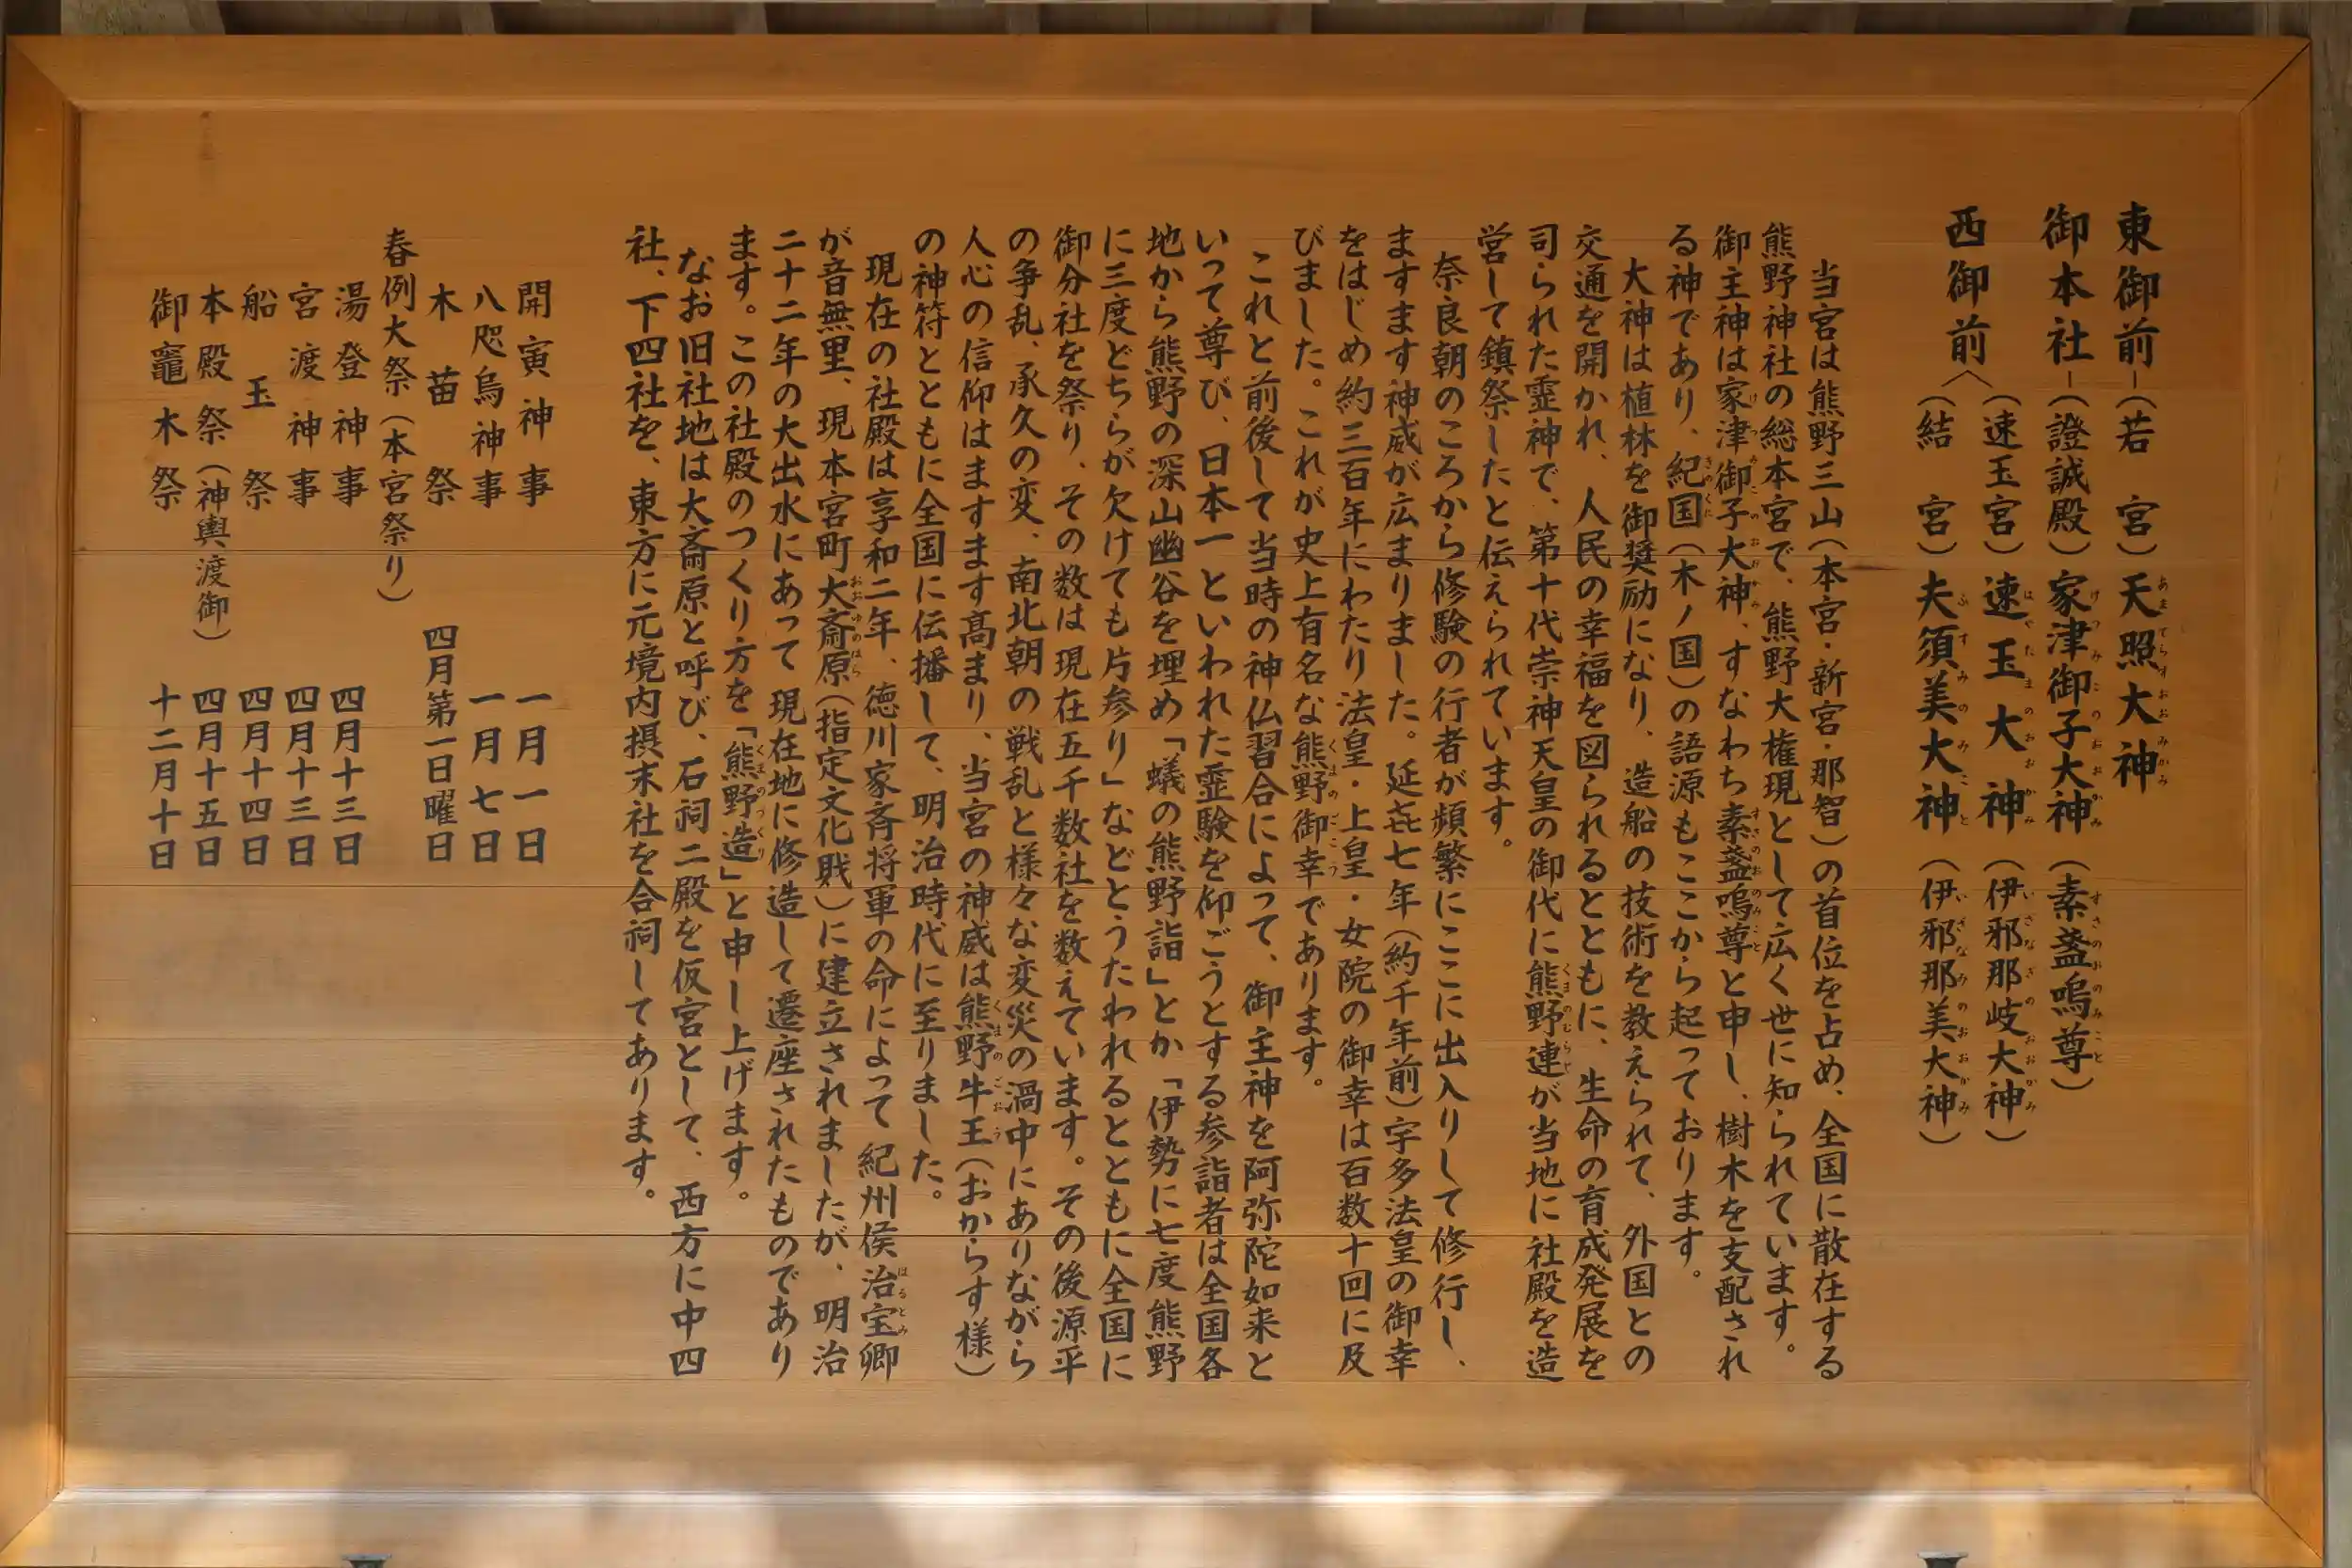 東御前―(若 宮)天照大神
御本社―(證誠殿)家津御子大神(素盞嗚尊)
西御前〈(速玉宮)速玉大神(伊邪那岐大神)
(結 宮)夫須美大神(伊邪那美大神)
当宮は熊野三山(本宮・新宮・那智)の首位を占め、全国に散在する
熊野神社の総本宮で、熊野大権現として広く世に知られています。
御主神は家津御子大神、すなわち素盞嗚尊と申し、樹木を支配され
る神であり、紀国(木ノ国)の語源もここから起っております。
大神は植林を御奨励になり、造船の技術を教えられて、外国との
交通を開かれ、人民の幸福を図られるとともに、生命の育成発展を
司られた霊神で、第十代崇神天皇の御代に熊野連が当地に社殿を造
営して鎮祭したと伝えられています。
奈良朝のころから修験の行者が頻繁にここに出入りして修行し、
ますます神威が広まりました。延㐂七年(約千年前)宇多法皇の御幸
をはじめ約三百年にわたり法皇・上皇・女院の御幸は百数十回に及
びました。これが史上有名な熊野御幸であります。
これと前後して当時の神仏習合によって、御主神を阿弥陀如来と
いって尊び、日本一といわれた霊験を仰ごうとする参詣者は全国各
地から熊野の深山幽谷を埋め「蟻の熊野詣」とか「伊勢に七度熊野
に三度どちらが欠けても片参り」などとうたわれるとともに全国に
御分社を祭り、その数は現在五千数社を数えています。その後源平
の争乱、承久の変、南北朝の戦乱と様々な変災の渦中にありながら
人心の信仰はますます髙まり、当宮の神威は熊野牛王(おからす様)
の神符とともに全国に伝播して、明治時代に至りました。
現在の社殿は享和二年、徳川家斉将軍の命によって紀州侯治宝卿
が音無里、現本宮町大斎原(指定文化財)に建立されましたが、明治
二十二年の大出水にあって現在地に修造して遷座されたものであり
ます。この社殿のつくり方を「熊野造」と申し上げます。
なお旧社地は大斎原と呼び、石祠二殿を仮宮として、西方に中四
社、下四社を、東方に元境内摂末社を合祠してあります。
開寅神事 一月一日
八咫烏神事 一月七日
木苗祭 四月第一日曜日
春例大祭(本宮祭り)
湯登神事 四月十三日
宮渡神事 四月十三日
船玉祭 四月十四日
本殿祭(神輿渡御) 四月十五日
御竈木祭 十二月十日